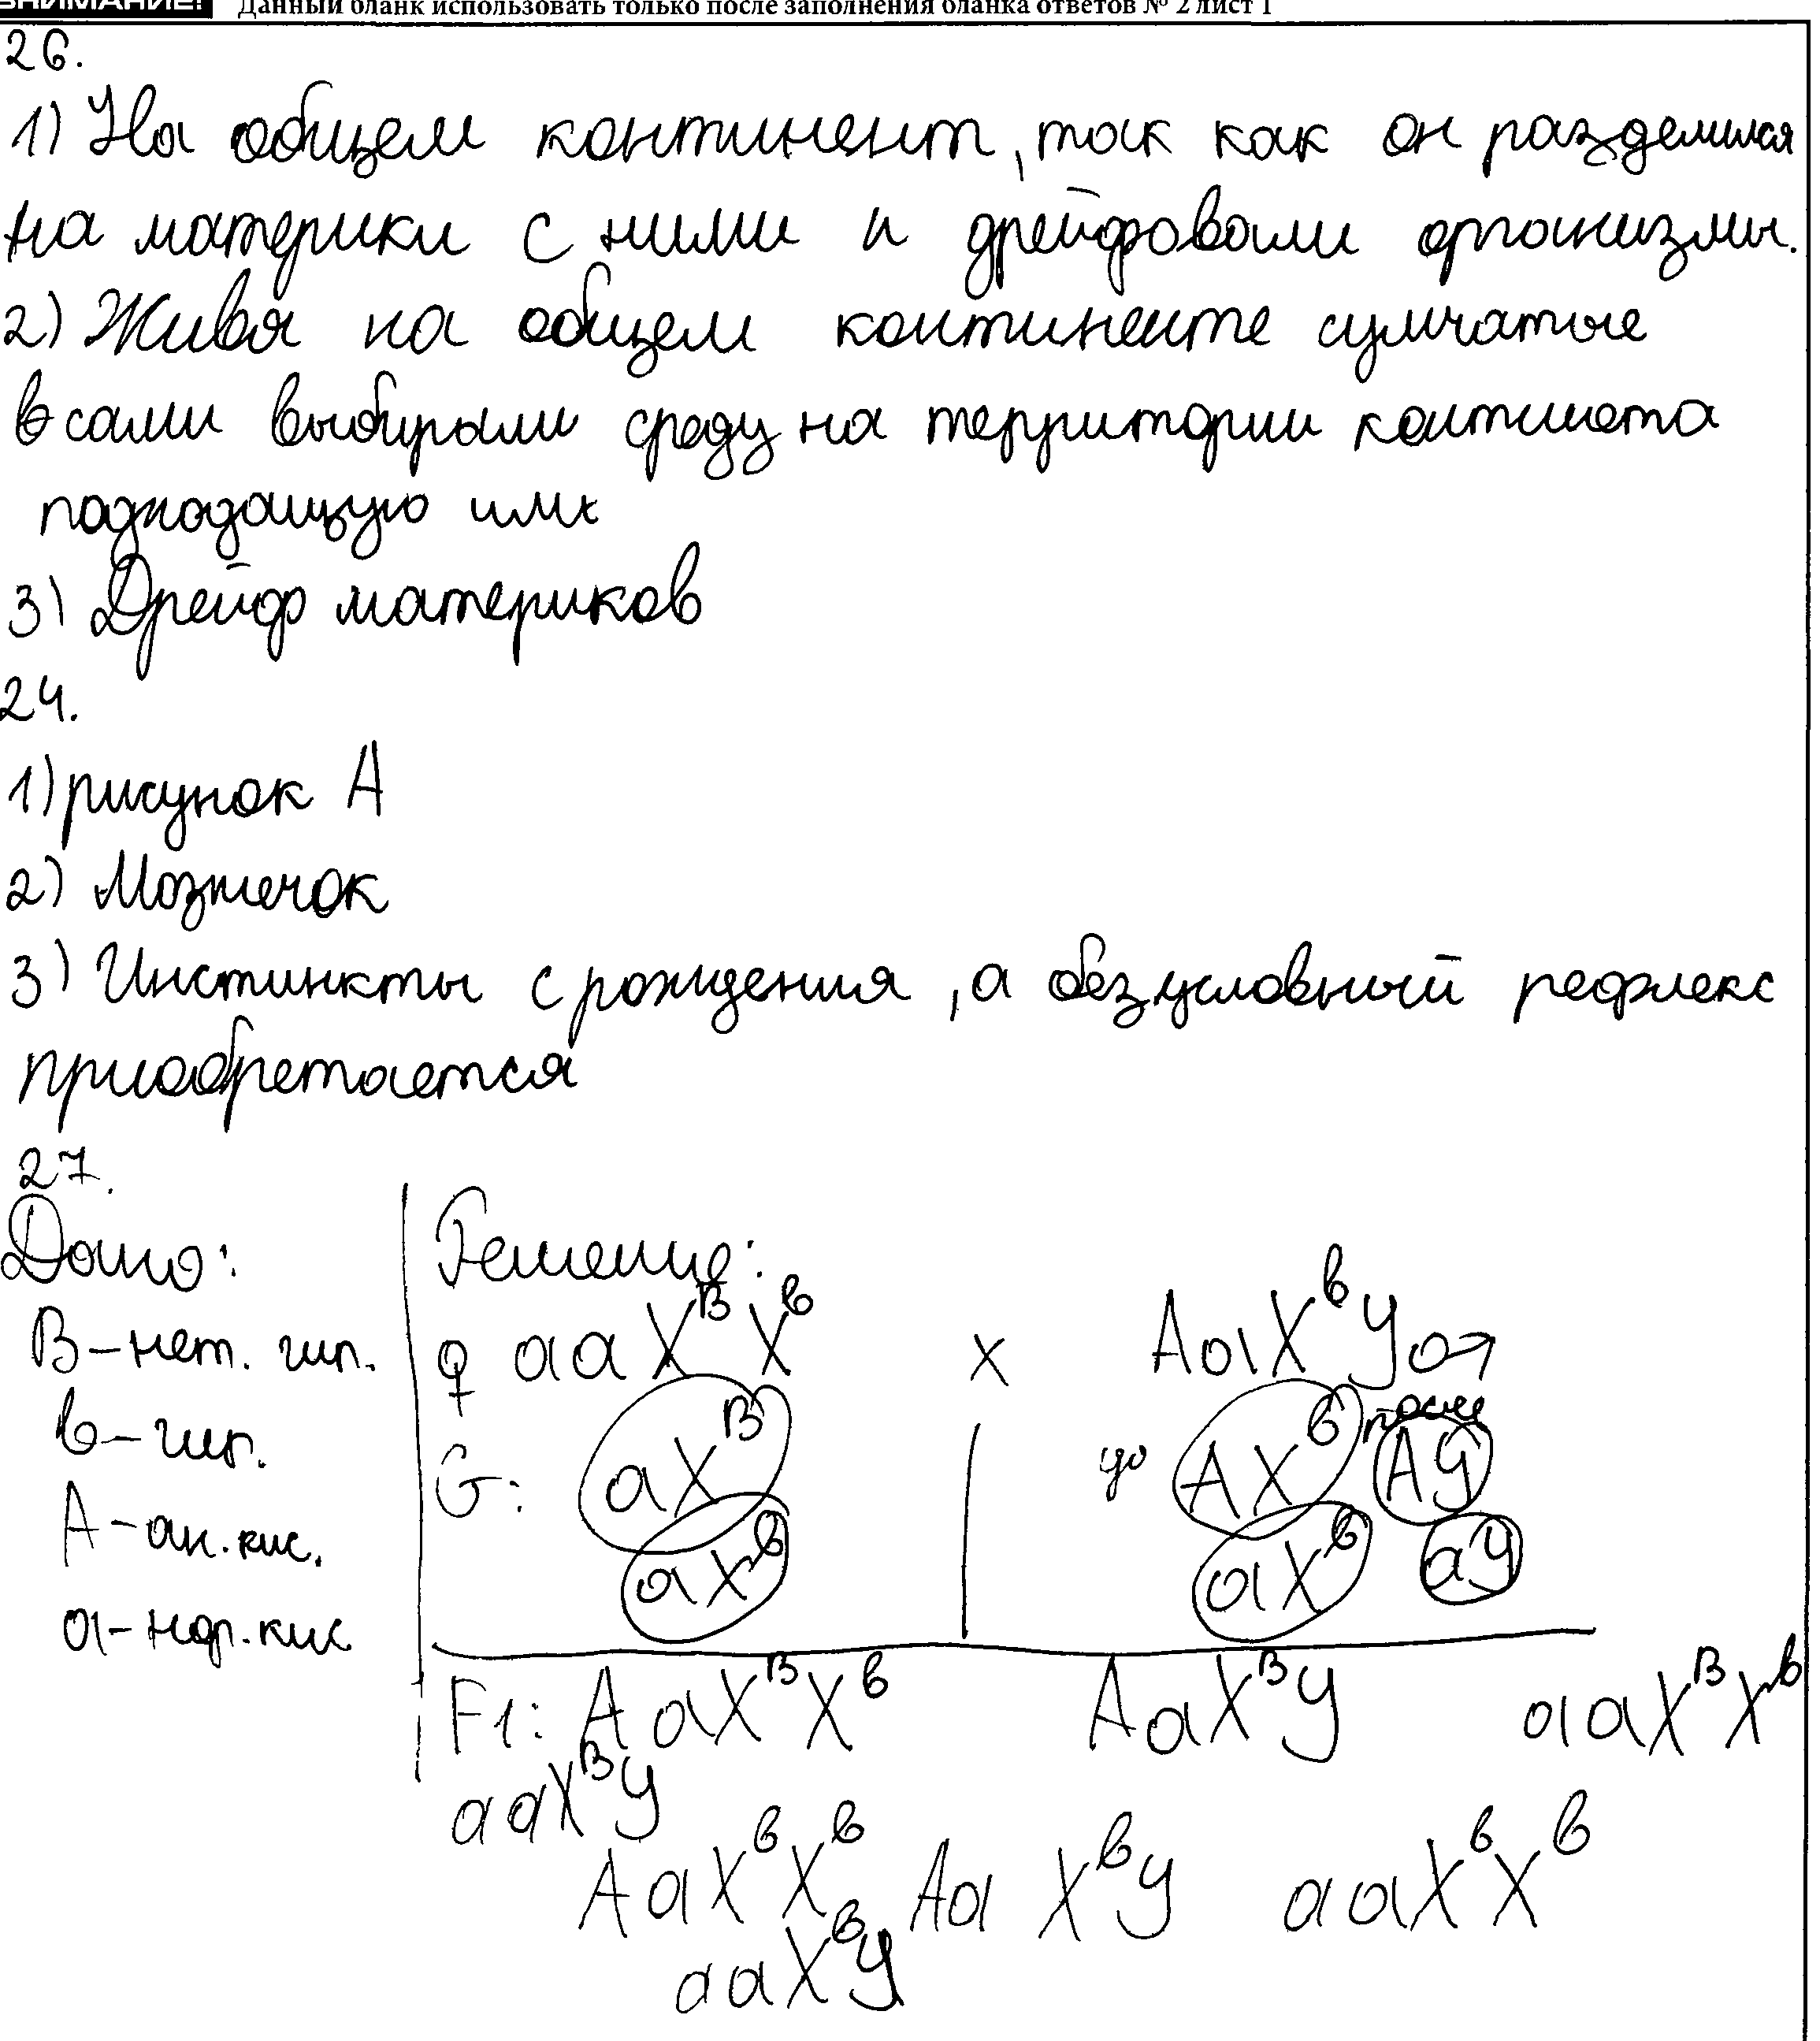 ВНИМАНИЕ! Данный бланк использовать только после заполнения бланка ответов № 2 лист 1
26.
1) На общем континент, так как он разделился
на материки с ними и дрейфовали организмы.
2) Живя на общем континенте сумчатые
сами выбирали среду на территории контината
подходящую им
3) Дрейф материков
24.
1) рисунок А
2) Мозжечок
3) Инстинкты с рождения, а безусловный рефлекс
приобретается
27.
Дано: Решение:
В – нет. гип. ♀ aa X^B X^b x Aa X^b У ♂
в – гип. G: aX^B до AX^b после AУ
А – ан. кис. aX^b aX^b aУ
а – нор. кис
F1: AaX^BX^b AaX^BУ aaX^BX^b
aaX^BУ
AaX^bX^b Aa X^bУ aaX^bX^b
aaX^bУ